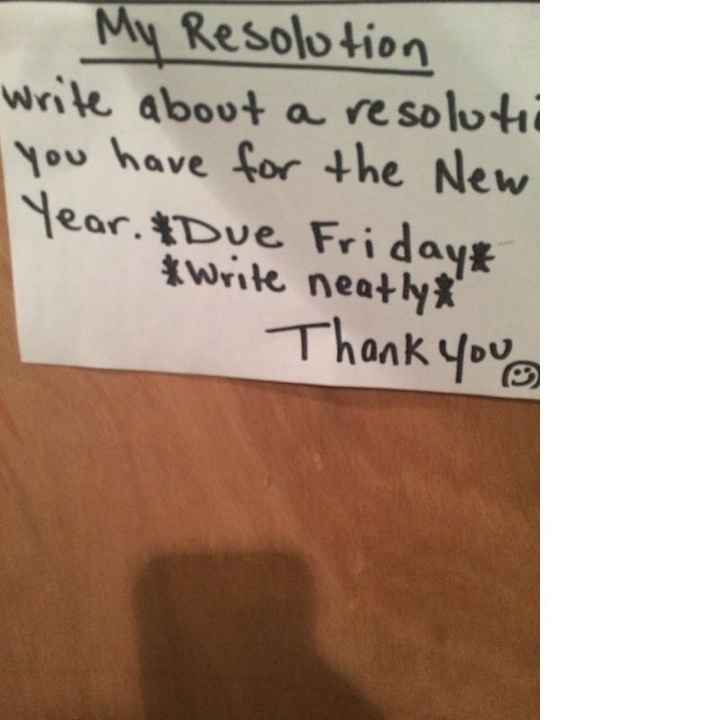 My Resolution
Write about a resoluti
you have for the New
Year. *Due Friday*
*Write neatly*
Thank you